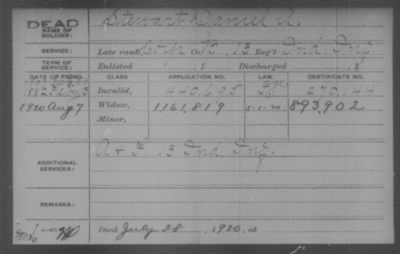 DEAD
NAME OF SOLDIER: Stewart Daniel A.
SERVICE: Late rank, Co. B, 13 Reg't Ind. Inf
TERM OF SERVICE: Enlisted , 1 Discharged , 1
DATE OF FILING. CLASS APPLICATION NO. LAW CERTIFICATE NO.
Invalid, 440,695 270,144
1920 Aug 7 Widow, 1,161,819 5-1-20 893,902
Minor,
ADDITIONAL SERVICES: A & F 13 Ind. Inf.
REMARKS:
Died July 28, 1920, at